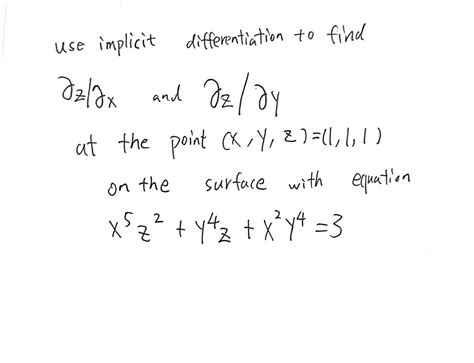 use implicit differentiation to find
∂z/∂x and ∂z/∂y
at the point (x, y, z)=(1,1,1)
on the surface with equation
x⁵z² + y⁴z + x²y⁴ = 3